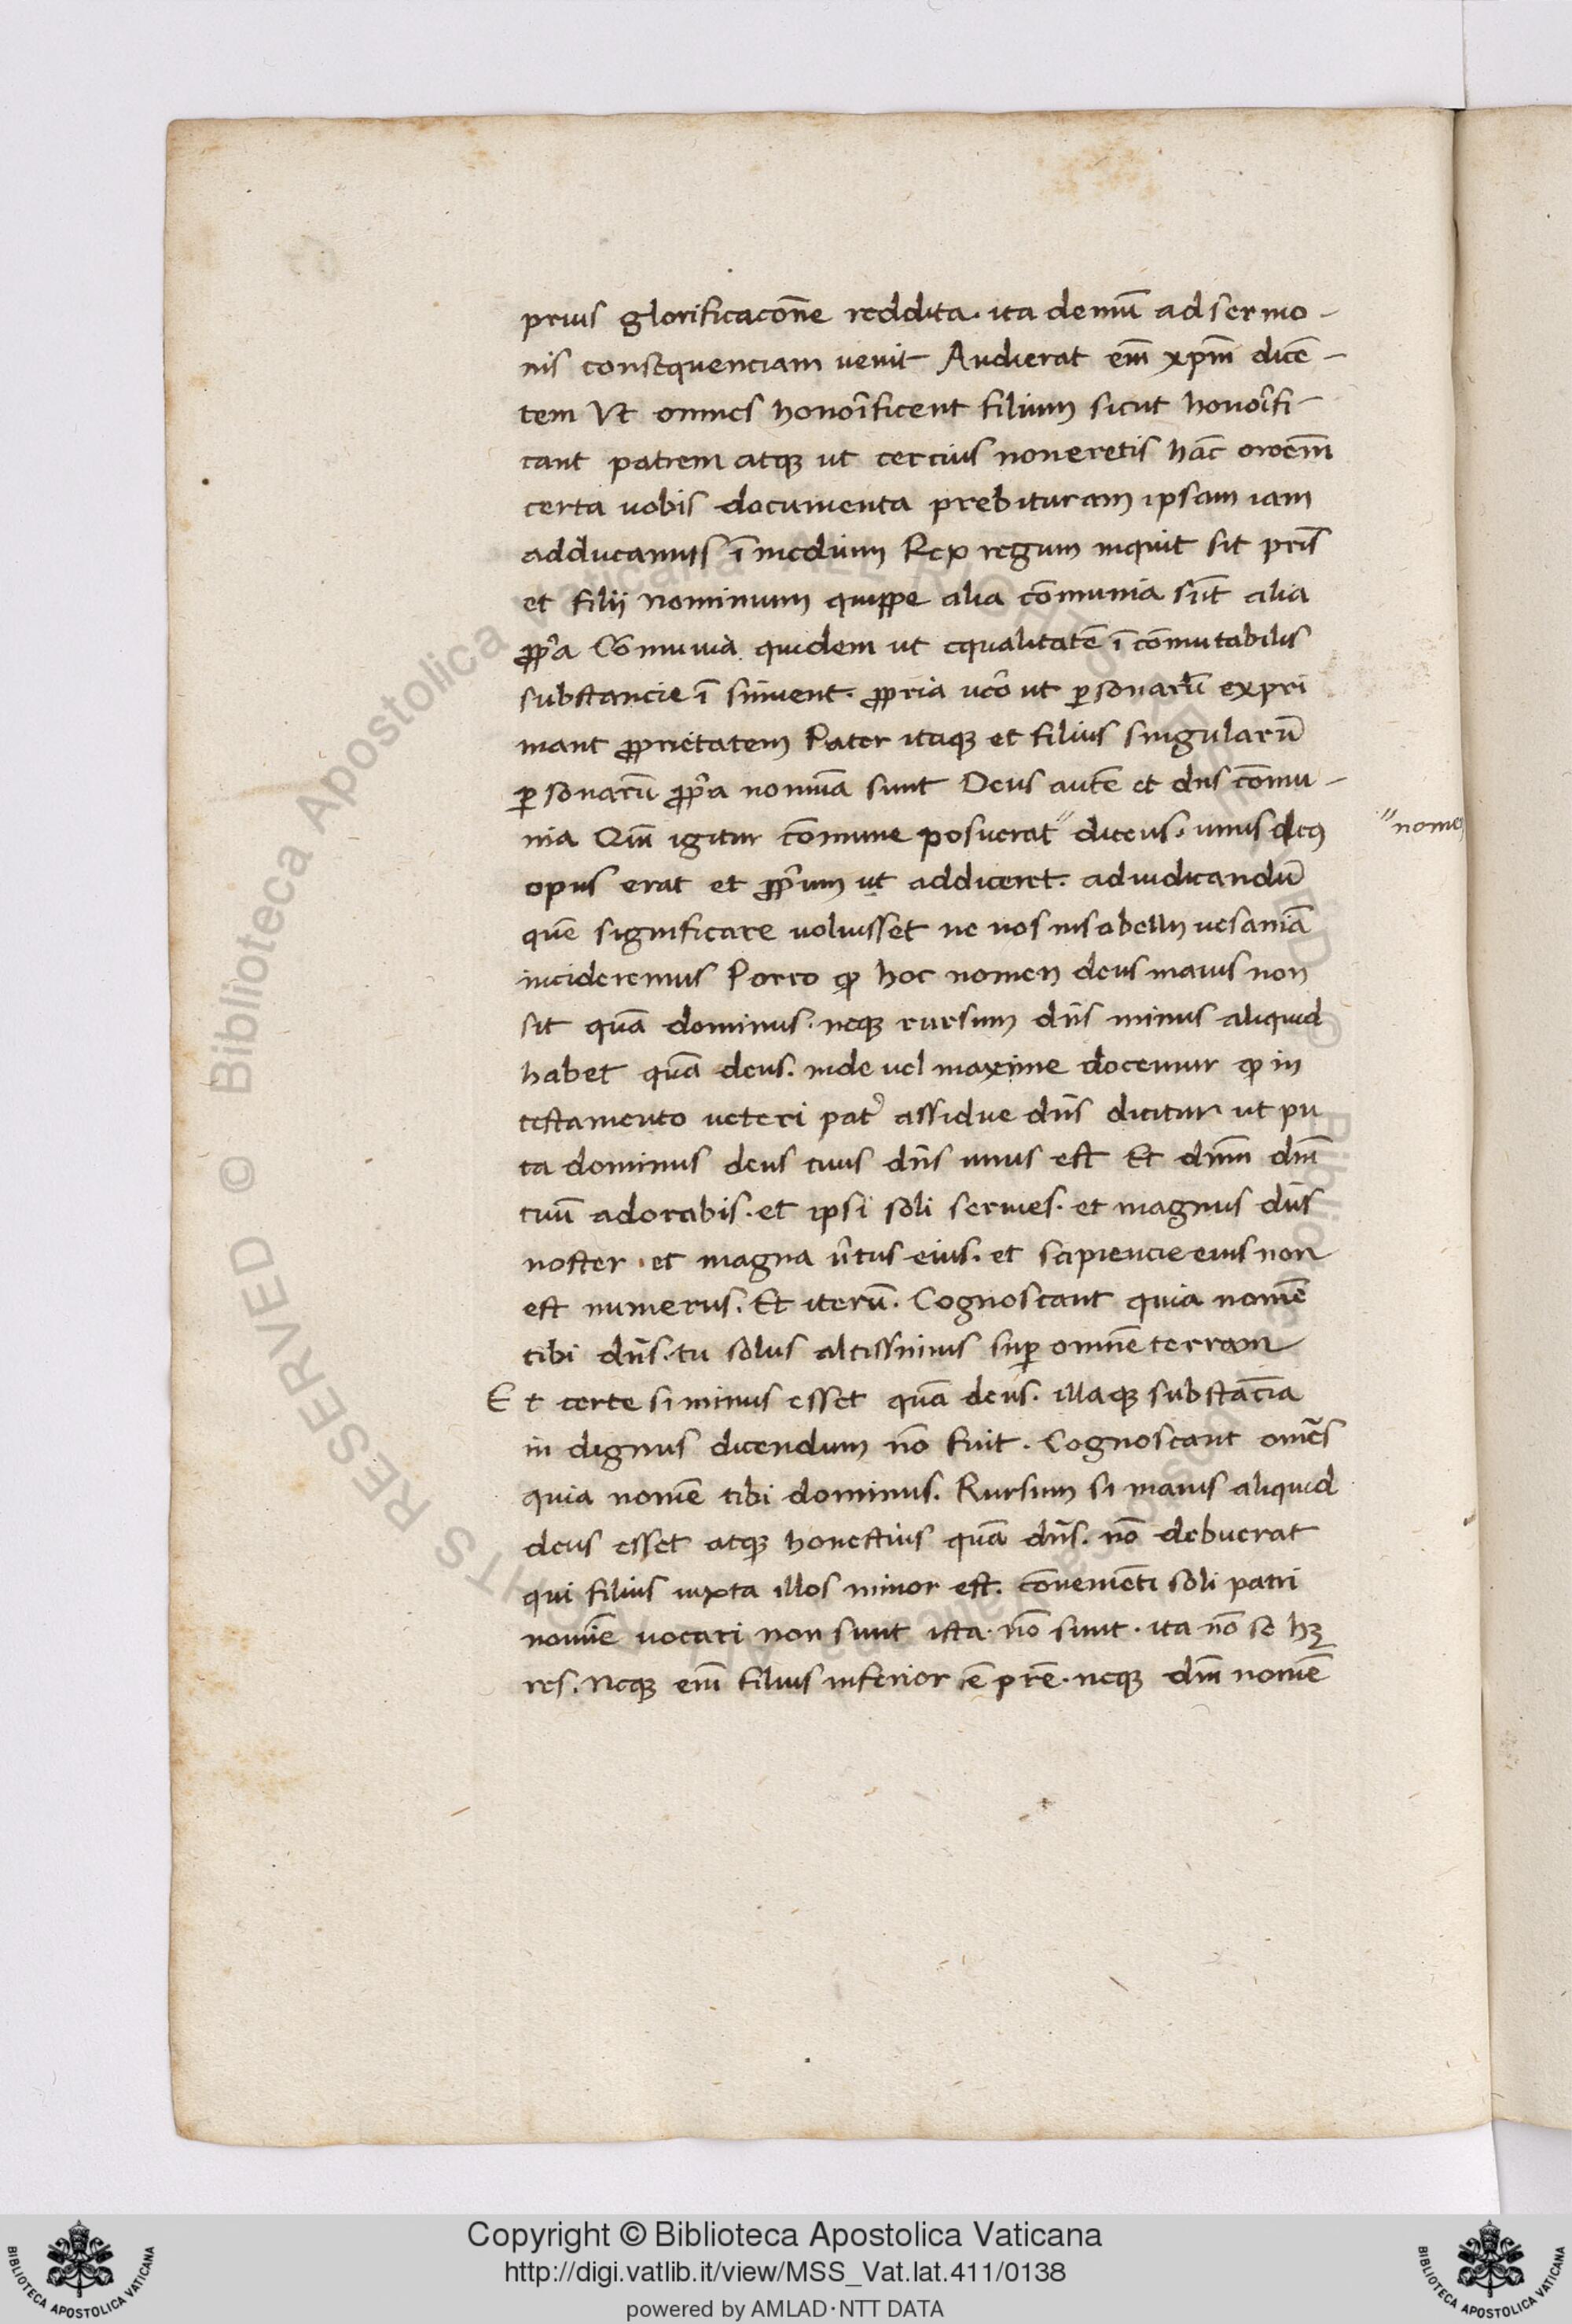 prius glorificacōne reddita. ita demū ad sermo-
nis consequenciam venit Audierat em̄ xpm̄ dicē-
tem Vt omnes honorificent filium sicut honorifi-
cant patrem atqꝫ ut cercius noueretis hāc oroēm
certa uobis documenta prebituram ipsam iam
adducamus ī medium Rex regum inquit sit pris̄
et filij Nominum quippe alia cōmunia sūt alia
ꝓpria Cōmunia quidem ut equalitatē īcōmutabilis
substancie īsinuent. ꝓpria uero ut ꝑsonarū expri
mant ꝓprietatem Pater itaqꝫ et filius singularū
ꝑsonarū ꝓpria nomina sunt Deus autē et dn̄s cōmu-
nia Qm̄ igitur cōmune posuerat" dicens. unus deus
"nomē
opus erat et ꝓprium ut addiceret. ad iudicandū
quē significare voluisset ne nos in sabellij vesaniā
incideremus Porro ꝙ hoc nomen deus maius non
sit quā dominus. neqꝫ rursum dn̄s minus aliquid
habet quā deus. inde vel maxime docemur ꝙ in
testamento veteri pater assidue dn̄s dicitur ut pu
ta dominus deus tuus dn̄s unus est Et dn̄m dm̄
tuū adorabis. et ipsi soli seruies. et magnus dn̄s
noster. et magna ūtus eius. et sapiencie eius non
est numerus. Et iterū. Cognoscant quia nomē
tibi dn̄s. tu solus altissimus suꝑ omnē terram
Et certe si minus esset quā deus. illaqꝫ substācia
indignus dicendum nō fuit. Cognoscant om̄es
quia nomē tibi dominus. Rursum si maius aliquid
deus esset atqꝫ honestius quā dn̄s. nō debuerat
qui filius iuxta illos minor est. cōuenienti soli patri
nomīe vocari non sunt ista. nō sunt. ita nō se hꝫ
res. Neqꝫ em̄ filius inferior ē prē. neqꝫ dn̄i nomē
Copyright © Biblioteca Apostolica Vaticana
http://digi.vatlib.it/view/MSS_Vat.lat.411/0138
powered by AMLAD·NTT DATA